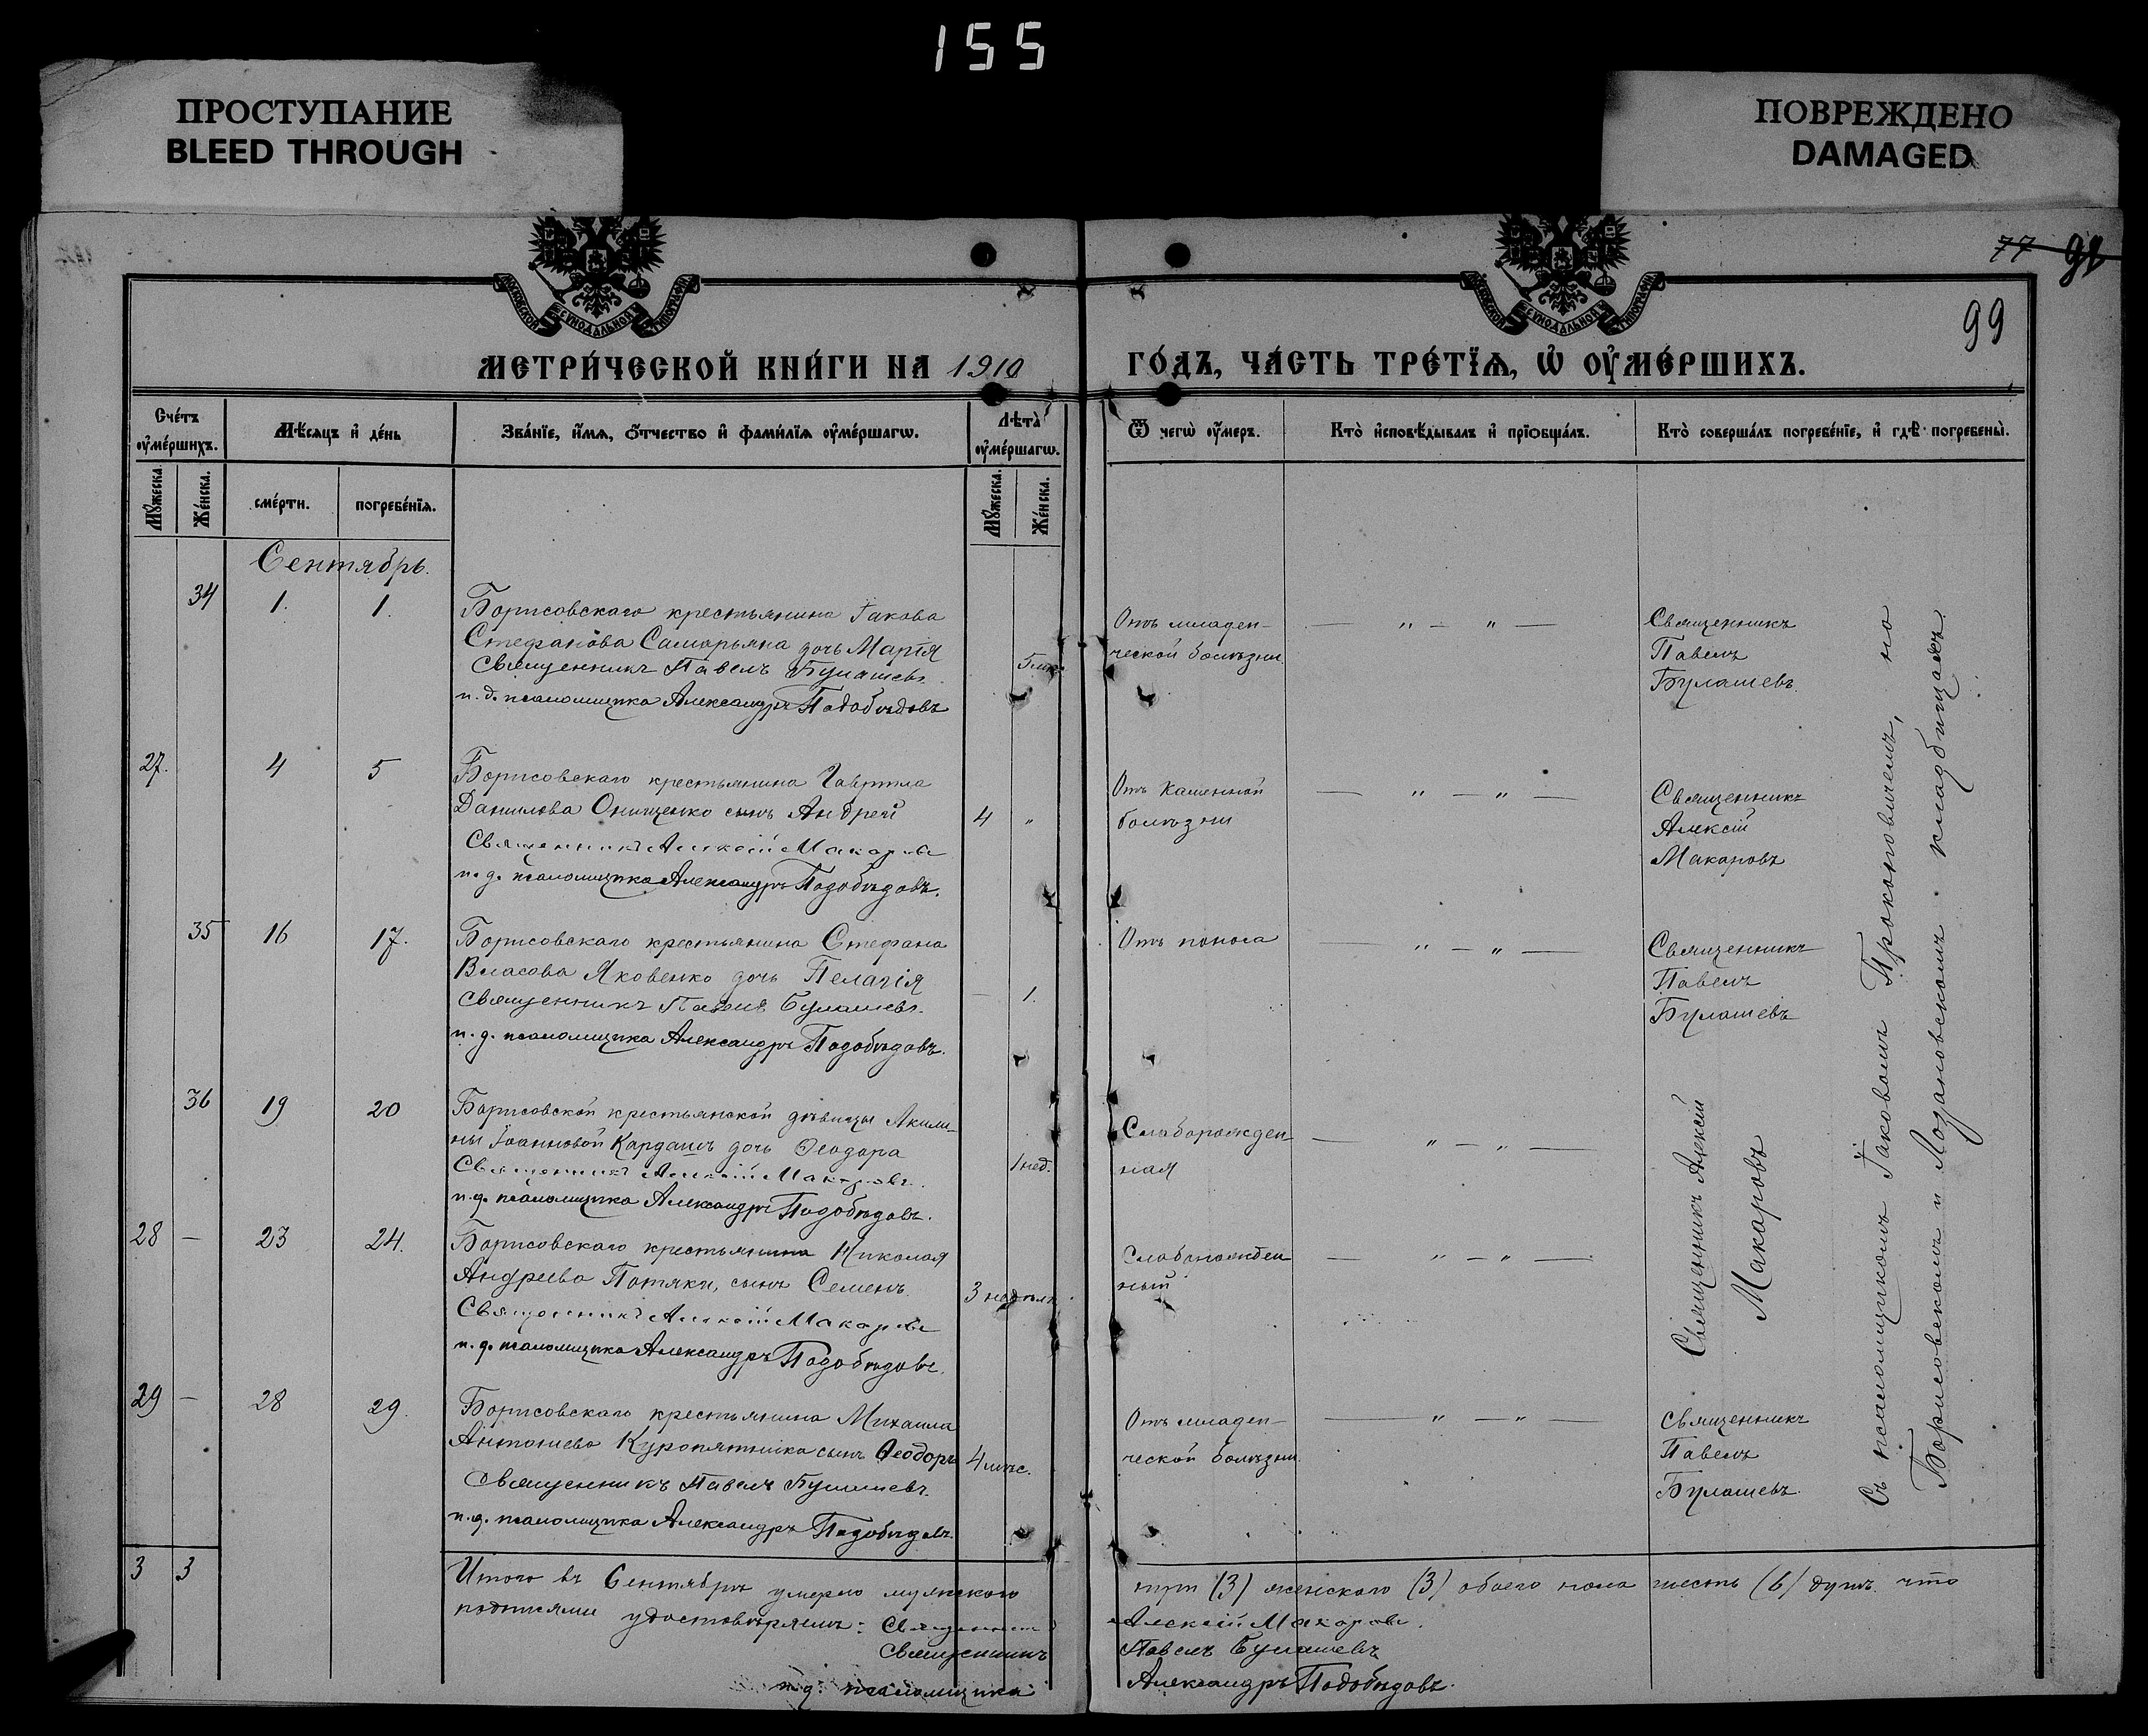 155
ПРОСТУПАНИЕ
BLEED THROUGH
ПОВРЕЖДЕНО
DAMAGED
77 91
99
МЕТРИ́ЧЕСКОЙ КНИ́ГИ НА 1910 ГО́ДЪ, ЧА́СТЬ ТРЕ́ТЇѦ, Ѡ҆ ОУ҆МЕ́РШИХЪ.
Счéтъ оу҆мéршихъ.
Мѣ́сяцъ и҆ дéнь
Звáнїе, и҆́мѧ, ѻ҆́тчество и҆ фамѝлїѧ оу҆мéршагѡ.
Лѣтà оу҆мéршагѡ.
Ѿ чегѡ̀ оу҆́меръ.
Ктò и҆сповѣ́дывалъ и҆ прїѻбщáлъ.
Ктò совершáлъ погребéнїе, и҆ гдѣ̀ погребены̀.
Мꙋ́жеска.
Жéнска.
смéрти.
погребéнїѧ.
Мꙋ́жеска.
Жéнска.
Сентябрь.
34 1. 1. Борисовскаго крестьянина Іакова
Стефанова Самарьяна дочь Марія
Священникъ Павелъ Булашевъ
и. д. псаломщика Александръ Подобѣдовъ
5 мѣс.
Отъ младен-
ческой болѣзни
— " — " —
Священникъ
Павелъ
Булашевъ.
27. 4 5 Борисовскаго крестьянина Гавріила
Данилова Онищенко сынъ Андрей
4 "
Священникъ Алексій Макаровъ
и. д. псаломщика Александръ Подобѣдовъ.
Отъ каменной
болѣзни
— " — " —
Священникъ
Алексій
Макаровъ
35 16 17. Борисовскаго крестьянина Стефана
Власова Яковенко дочь Пелагія
— 1.
Священникъ Павелъ Булашевъ.
и. д. псаломщика Александръ Подобѣдовъ.
Отъ поноса
" — " —
Священникъ
Павелъ
Булашевъ
36 19 20 Борисовской крестьянской дѣвицы Акили-
ны Іоанновой Кардашъ дочь Ѳеодора
1 нед.
Священникъ Алексій Макаровъ.
и. д. псаломщика Александръ Подобѣдовъ.
Слаборожден-
ная
— " — " —
Священникъ Алексій
Макаровъ
28 — 23 24. Борисовскаго крестьянина Николая
Андреева Потяки, сынъ Семенъ.
3 недѣли
Священникъ Алексій Макаровъ
и. д. псаломщика Александръ Подобѣдовъ.
Слаборожден
ный
— " — " —
29 — 28 29. Борисовскаго крестьянина Михаила
Антоніева Куропятника сынъ Ѳеодоръ
4 мѣс.
Священникъ Павелъ Булашевъ.
и. д. псаломщика Александръ Подобѣдовъ.
Отъ младен-
ческой болѣзни.
— " — " —
Священникъ
Павелъ
Булашевъ.
Съ псаломщикомъ Іаковомъ Прокоповичемъ, но
Борисовскомъ и Лозановскомъ кладбищахъ.
3 3
Итого въ Сентябрѣ умерло мужескаго три (3) женскаго (3) обоего пола шесть (6) душъ. что
подписями удостовѣряемъ: Священникъ Алексій Макаровъ.
Священникъ Павелъ Булашевъ
и. д. псаломщика Александръ Подобѣдовъ.